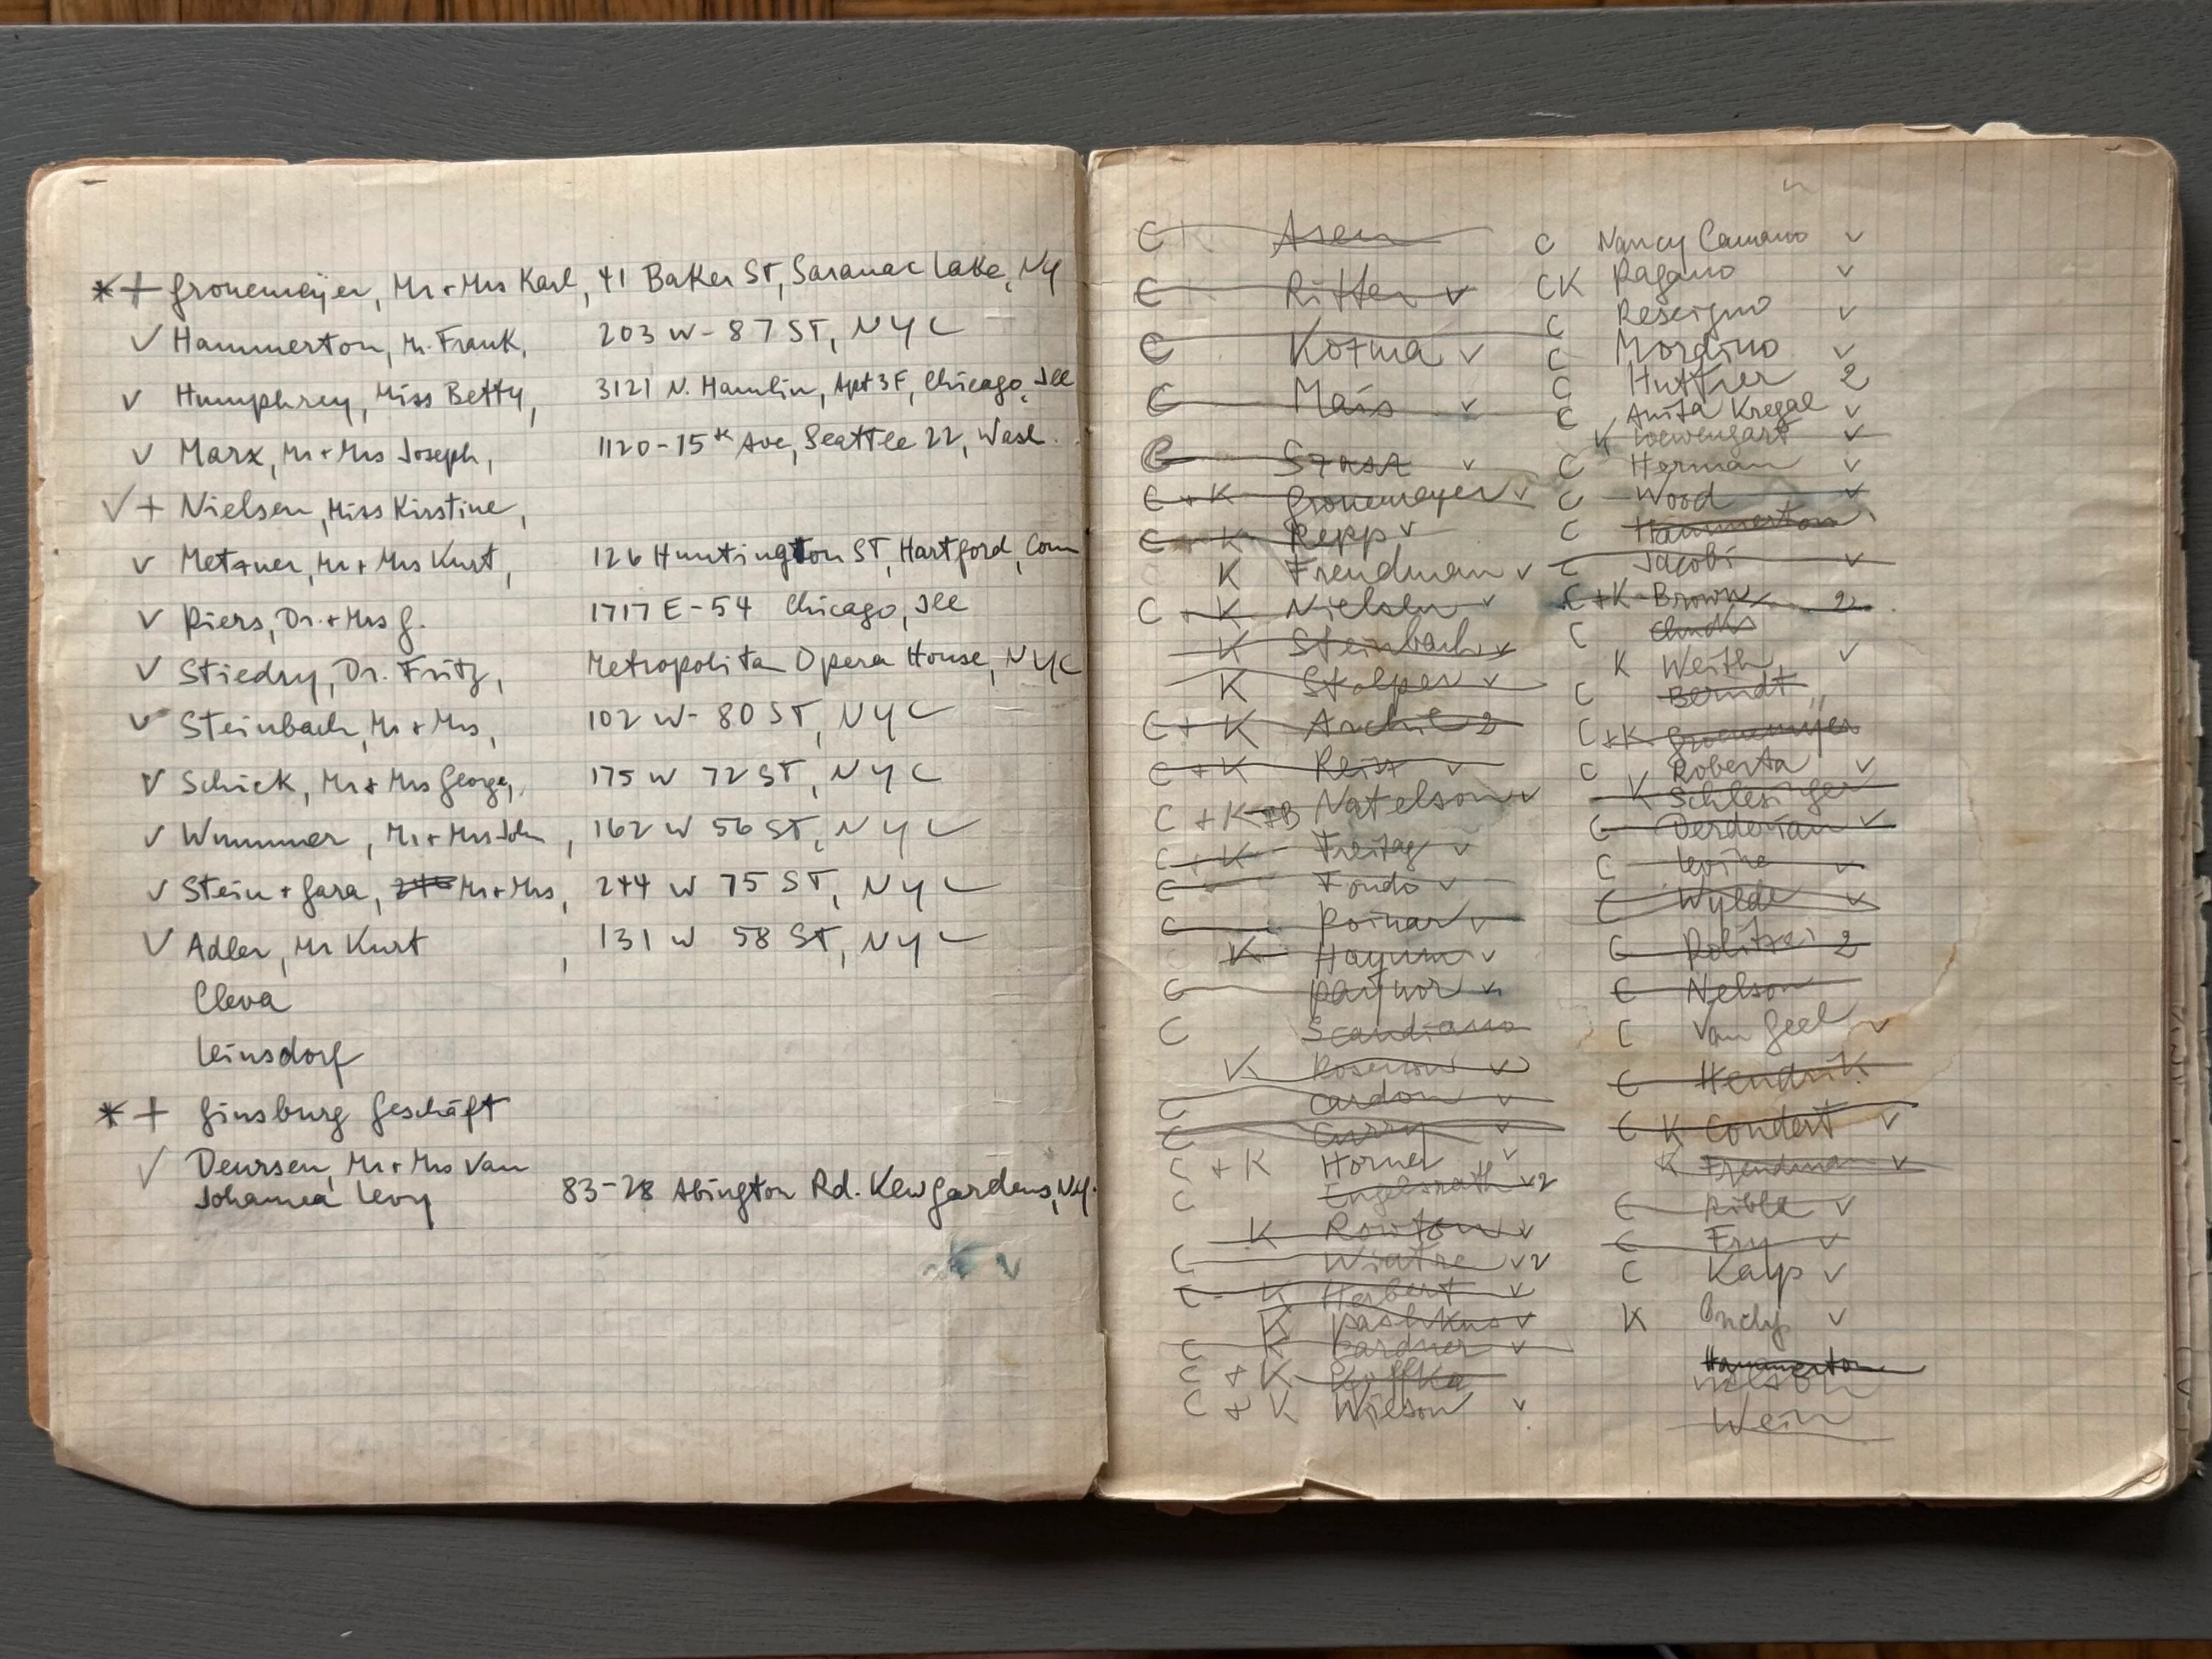 *+ Gronemeyer, Mr + Mrs Karl, 41 Baker ST, Saranac Lake, NY
✓ Hammerton, Mr. Frank, 203 W - 87 ST, NYC
✓ Humphrey, Miss Betty, 3121 N. Hamlin, Apt 3F, Chicago, Ill
✓ Marx, Mr + Mrs Joseph, 1120 - 15th Ave, Seattle 22, Wash.
✓ + Nielsen, Miss Kirstine,
✓ Metzner, Mr + Mrs Kurt, 126 Huntington ST, Hartford, Conn
✓ Piers, Dr. + Mrs G. 1717 E - 54 Chicago, Ill
✓ Stiedry, Dr. Fritz, Metropolitan Opera House, NYC
✓ Steinbach, Mr + Mrs, 102 W - 80 ST, NYC
✓ Schick, Mr + Mrs George, 175 W 72 ST, NYC
✓ Wummer, Mr + Mrs John, 162 W 56 ST, NYC
✓ Stein + Gara, Mr + Mrs, 244 W 75 ST, NYC
✓ Adler, Mr Kurt, 131 W 58 ST, NYC
Cleva
Leinsdorf
*+ Ginsburg Geschäft
✓ Deursen, Mr + Mrs Van
Johanna Levy 83-28 Abington Rd. Kew Gardens, NY.
K ✓
C Asen
C Ritter ✓
C Kozma ✓
C Mais ✓
C Szasz ✓
C + K Gronemeyer ✓
C + K Repp ✓
K Freudman ✓
C + K Nielsen ✓
K Steinbach ✓
K Stolper ✓
C + K 2
C + K Reiss ✓
C + K + B Natelson ✓
C + K Freitag ✓
C Fondo ✓
C Poinar ✓
K Hayum ✓
C ✓
C Scandiano
K ✓
C Cardon ✓
C Curry ✓
C + K Horner ✓
C Engelsrath ✓2
K Rowton ✓
C ✓2
C - K Herbert ✓
K Pashkus ✓
C K Gardner ✓
C + K Koffka
C + K Wilson ✓
C Nancy Camano ✓
CK Ragano ✓
C Rescigno ✓
C Mordino ✓
C Huttner 2
C Anita Kregal ✓
K Loewengart ✓
C Herman ✓
C Wood ✓
C Hammerton
C Jacobi ✓
C + K Brown 2
C
K Weith ✓
C Berndt
C + K Gronemeyer
C Roberta ✓
K Schlesinger
C Derderian ✓
C Levine ✓
C Wylde ✓
C Politzei 2
C Nelson
C Van Geel ✓
C Hendrik
C K Condert ✓
K Freudman ✓
C Ribla ✓
C Fry ✓
C Kays ✓
K ✓
Hammerton
Wein